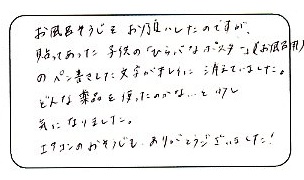 お風呂そうじを お願いしたのですが、
貼ってあった 子供の「ひらがなポスター」(お風呂用)
のペン書きした文字がキレイに 消えていました。
どんな薬品を使ったのかな…と少し
気になりました。
エアコンのおそうじも、ありがとうございました!